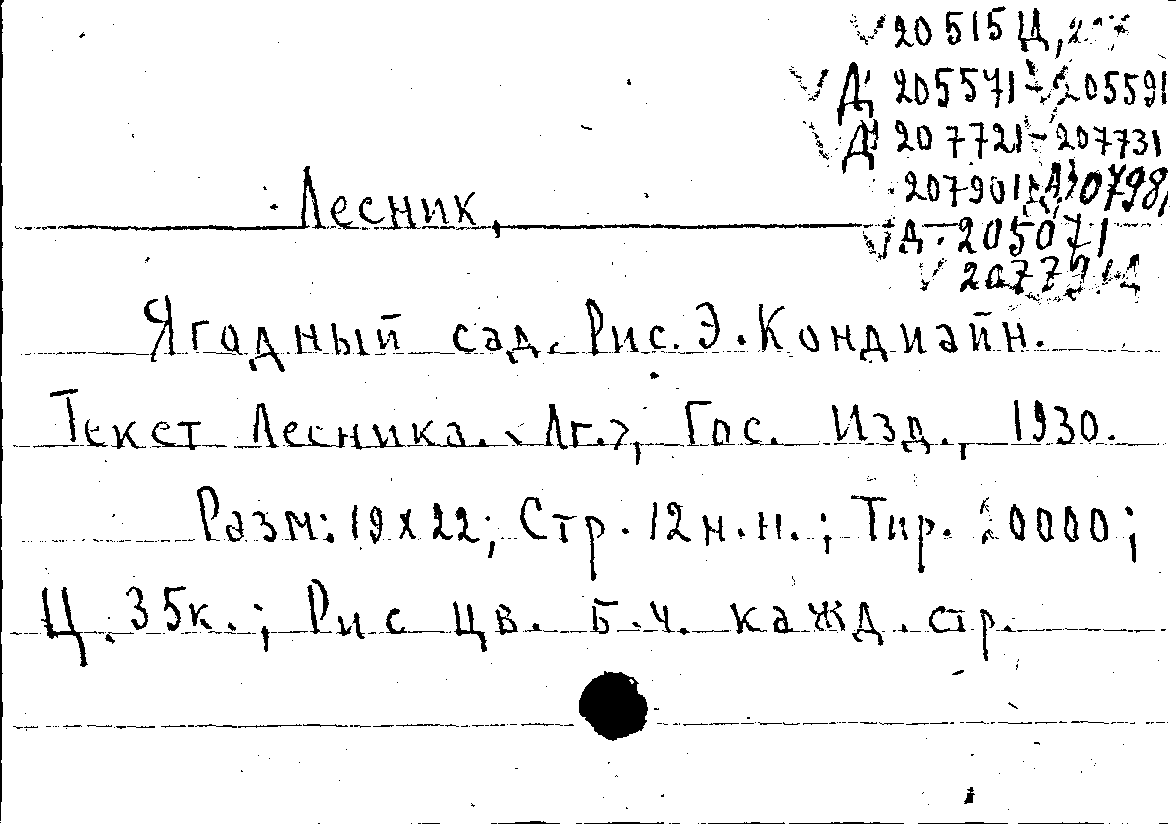 20515Ц,
Д 205571-205591
Д 207721-207731
207901Д
Лесник,
Д. 205071
Ягодный сад. Рис. Э. Кондиайн.
Текст Лесника. <Лг.>, Гос. Изд., 1930.
Разм: 19x22; Стр. 12 н.н.; Тир. 20000;
Ц. 35к.; Рис цв. Б.ч. кажд. стр.